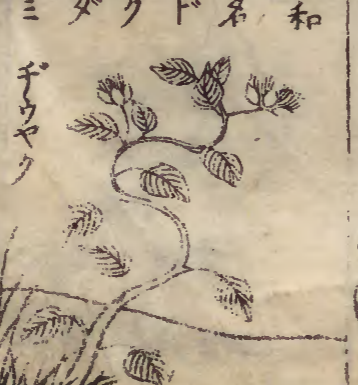 和名ドクダミ
ヂウヤク